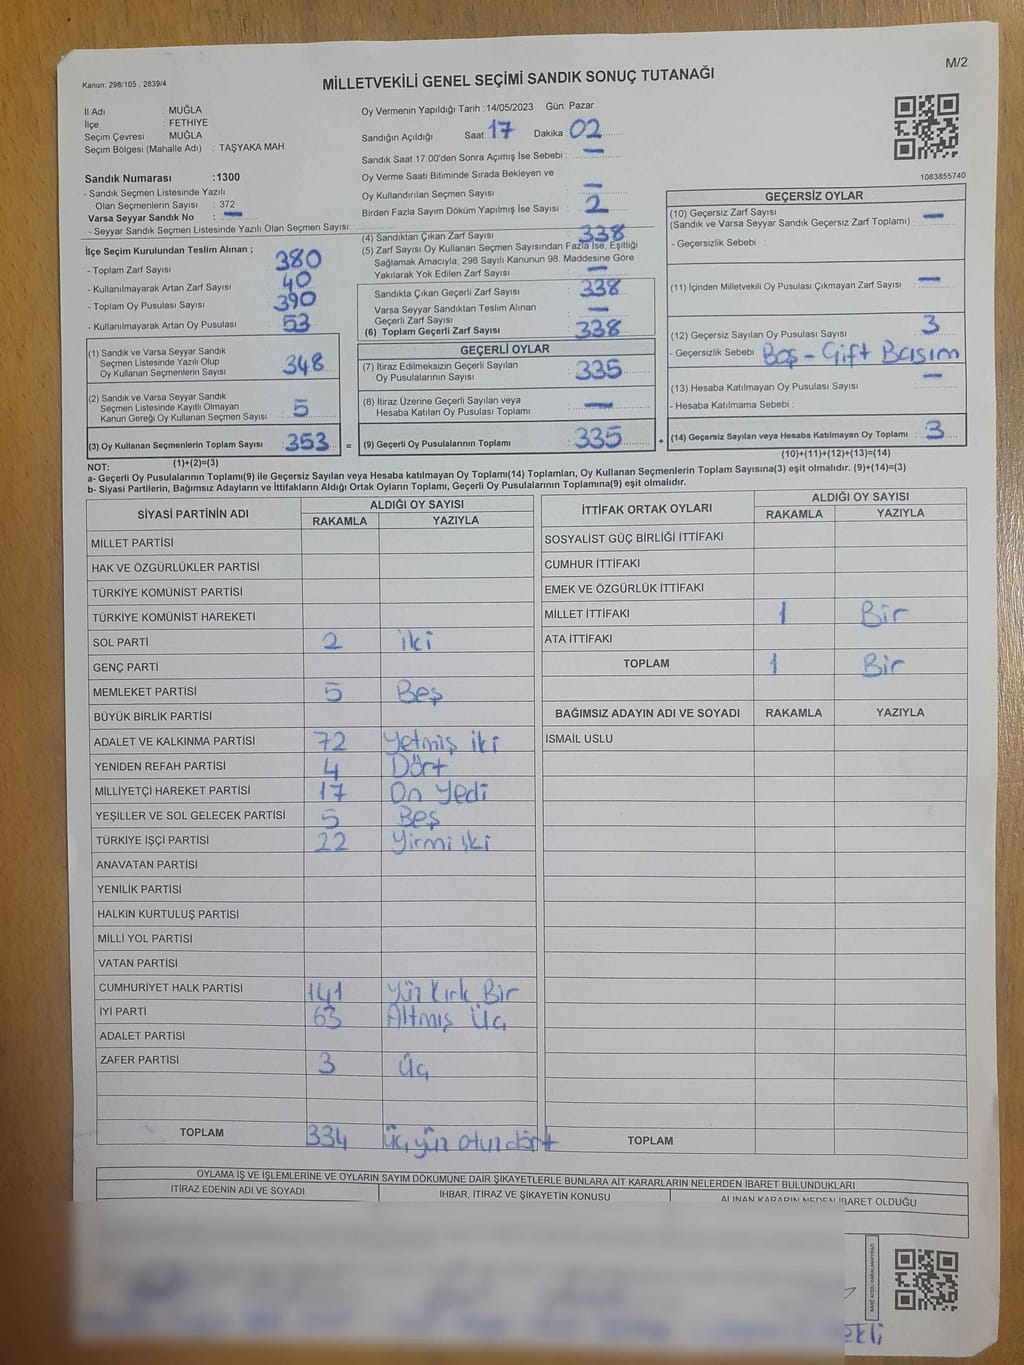 M/2
Kanun: 298/105 , 2839/4
MİLLETVEKİLİ GENEL SEÇİMİ SANDIK SONUÇ TUTANAĞI
İl Adı : MUĞLA
İlçe : FETHİYE
Seçim Çevresi : MUĞLA
Seçim Bölgesi (Mahalle Adı) : TAŞYAKA MAH.
Sandık Numarası :1300
- Sandık Seçmen Listesinde Yazılı
Olan Seçmenlerin Sayısı : 372
Varsa Seyyar Sandık No : —
- Seyyar Sandık Seçmen Listesinde Yazılı Olan Seçmen Sayısı:
Oy Vermenin Yapıldığı Tarih :14/05/2023 Gün: Pazar
Sandığın Açıldığı Saat: 17 Dakika: 02
Sandık Saat 17:00'den Sonra Açımış İse Sebebi : —
Oy Verme Saati Bitiminde Sırada Bekleyen ve
Oy Kullandırılan Seçmen Sayısı : —
Birden Fazla Sayım Döküm Yapılmış İse Sayısı : 2
1083855740
İlçe Seçim Kurulundan Teslim Alınan ;
- Toplam Zarf Sayısı : 380
- Kullanılmayarak Artan Zarf Sayısı : 40
- Toplam Oy Pusulası Sayısı : 390
- Kullanılmayarak Artan Oy Pusulası : 53
(1) Sandık ve Varsa Seyyar Sandık
Seçmen Listesinde Yazılı Olup
Oy Kullanan Seçmenlerin Sayısı : 348
(2) Sandık ve Varsa Seyyar Sandık
Seçmen Listesinde Kayıtlı Olmayan
Kanun Gereği Oy Kullanan Seçmen Sayısı : 5
(3) Oy Kullanan Seçmenlerin Toplam Sayısı : 353 =
(1)+(2)=(3)
(4) Sandıktan Çıkan Zarf Sayısı : 338
(5) Zarf Sayısı Oy Kullanan Seçmen Sayısından Fazla İse, Eşitliği
Sağlamak Amacıyla; 298 Sayılı Kanunun 98. Maddesine Göre
Yakılarak Yok Edilen Zarf Sayısı : —
Sandıkta Çıkan Geçerli Zarf Sayısı : 338
Varsa Seyyar Sandıktan Teslim Alınan
Geçerli Zarf Sayısı : —
(6) Toplam Geçerli Zarf Sayısı : 338
GEÇERLİ OYLAR
(7) İtiraz Edilmeksizin Geçerli Sayılan
Oy Pusulalarının Sayısı : 335
(8) İtiraz Üzerine Geçerli Sayılan veya
Hesaba Katılan Oy Pusulası Toplamı : —
(9) Geçerli Oy Pusulalarının Toplamı : 335 +
GEÇERSİZ OYLAR
(10) Geçersiz Zarf Sayısı
(Sandık ve Varsa Seyyar Sandık Geçersiz Zarf Toplamı) : —
- Geçersizlik Sebebi :
(11) İçinden Milletvekili Oy Pusulası Çıkmayan Zarf Sayısı : —
(12) Geçersiz Sayılan Oy Pusulası Sayısı : 3
- Geçersizlik Sebebi : Boş - Çift Basım
(13) Hesaba Katılmayan Oy Pusulası Sayısı : —
- Hesaba Katılmama Sebebi :
(14) Geçersiz Sayılan veya Hesaba Katılmayan Oy Toplamı : 3
(10)+(11)+(12)+(13)=(14)
NOT:
a- Geçerli Oy Pusulalarının Toplamı(9) ile Geçersiz Sayılan veya Hesaba katılmayan Oy Toplamı(14) Toplamları, Oy Kullanan Seçmenlerin Toplam Sayısına(3) eşit olmalıdır. (9)+(14)=(3)
b- Siyasi Partilerin, Bağımsız Adayların ve İttifakların Aldığı Ortak Oyların Toplamı, Geçerli Oy Pusulalarının Toplamına(9) eşit olmalıdır.
SİYASİ PARTİNİN ADI ALDIĞI OY SAYISI
RAKAMLA YAZIYLA
MİLLET PARTİSİ
HAK VE ÖZGÜRLÜKLER PARTİSİ
TÜRKİYE KOMÜNİST PARTİSİ
TÜRKİYE KOMÜNİST HAREKETİ
SOL PARTİ 2 iki
GENÇ PARTİ
MEMLEKET PARTİSİ 5 Beş
BÜYÜK BİRLİK PARTİSİ
ADALET VE KALKINMA PARTİSİ 72 Yetmiş iki
YENİDEN REFAH PARTİSİ 4 Dört
MİLLİYETÇİ HAREKET PARTİSİ 17 On Yedi
YEŞİLLER VE SOL GELECEK PARTİSİ 5 Beş
TÜRKİYE İŞÇİ PARTİSİ 22 Yirmi iki
ANAVATAN PARTİSİ
YENİLİK PARTİSİ
HALKIN KURTULUŞ PARTİSİ
MİLLİ YOL PARTİSİ
VATAN PARTİSİ
CUMHURİYET HALK PARTİSİ 141 Yüz Kırk Bir
İYİ PARTİ 63 Altmış Üç
ADALET PARTİSİ
ZAFER PARTİSİ 3 Üç
TOPLAM 334 Üç yüz otuz dört
İTTİFAK ORTAK OYLARI ALDIĞI OY SAYISI
RAKAMLA YAZIYLA
SOSYALİST GÜÇ BİRLİĞİ İTTİFAKI
CUMHUR İTTİFAKI
EMEK VE ÖZGÜRLÜK İTTİFAKI
MİLLET İTTİFAKI 1 Bir
ATA İTTİFAKI
TOPLAM 1 Bir
BAĞIMSIZ ADAYIN ADI VE SOYADI RAKAMLA YAZIYLA
İSMAİL USLU
TOPLAM
OYLAMA İŞ VE İŞLEMLERİNE VE OYLARIN SAYIM DÖKÜMÜNE DAİR ŞİKAYETLERLE BUNLARA AİT KARARLARIN NELERDEN İBARET BULUNDUKLARI
İTİRAZ EDENİN ADI VE SOYADI İHBAR, İTİRAZ VE ŞİKAYETİN KONUSU ALINAN KARARIN NEDEN İBARET OLDUĞU